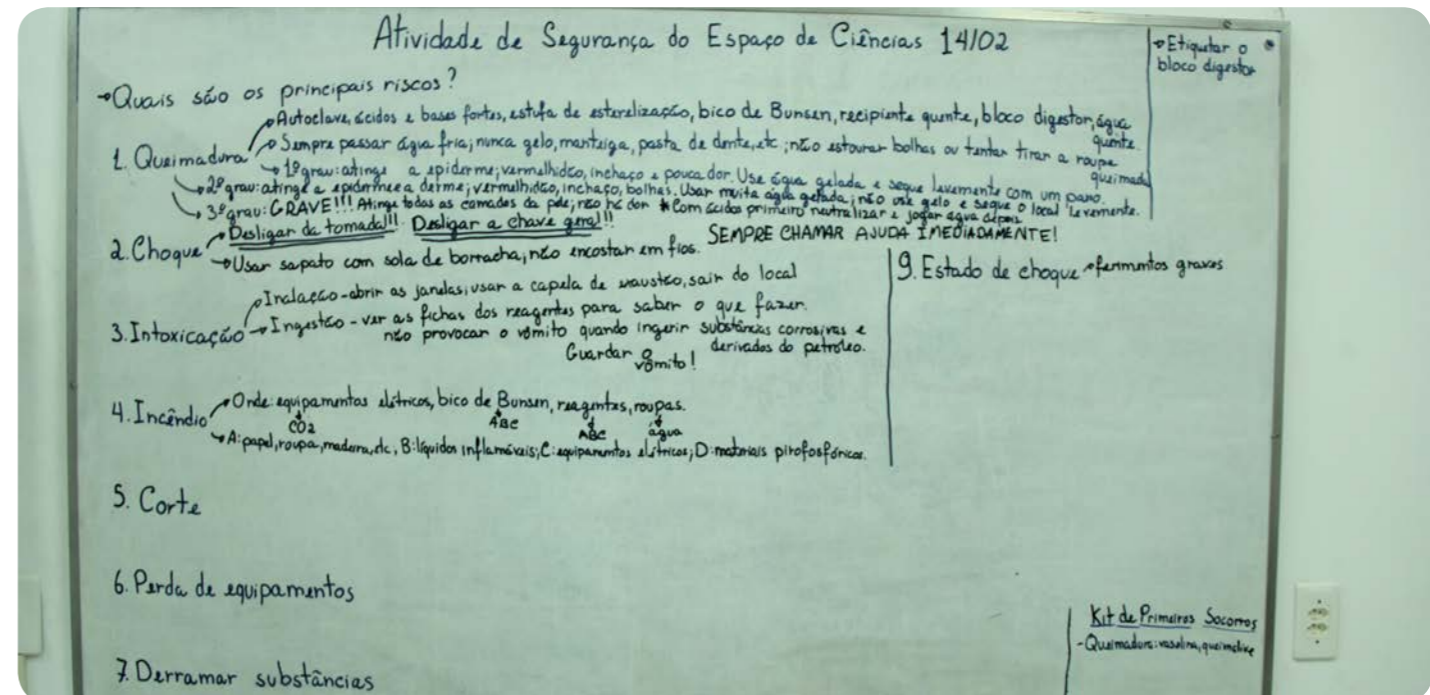 Atividade de Segurança do Espaço de Ciências 14/02
→Etiquetar o
bloco digestor
→Quais são os principais riscos?
→Autoclave, ácidos e bases fortes, estufa de esterelização, bico de Bunsen, recipiente quente, bloco digestor, água
quente.
1. Queimadura →Sempre passar água fria; nunca gelo, manteiga, pasta de dente, etc; não estourar bolhas ou tentar tirar a roupa
queimada
→1º grau: atinge a epiderme; vermelhidão, inchaço e pouca dor. Use água gelada e seque levemente com um pano.
→2º grau: atinge a epiderme e a derme; vermelhidão, inchaço, bolhas. Usar muita água gelada; não use gelo e seque o local levemente.
→3º grau: GRAVE!!! Atinge todas as camadas da pele; não há dor *Com ácidos primeiro neutralizar e jogar água depois
2. Choque →Desligar da tomada!!! Desligar a chave geral!!!
SEMPRE CHAMAR AJUDA IMEDIADAMENTE!
→Usar sapato com sola de borracha, não encostar em fios.
9. Estado de choque →ferimentos graves
3. Intoxicação →Inalação - abrir as janelas, usar a capela de exaustão, sair do local
→Ingestão - ver as fichas dos reagentes para saber o que fazer.
não provocar o vômito quando ingerir substâncias corrosivas e
derivados do petróleo.
Guardar o
vômito!
4. Incêndio →Onde: equipamentos elétricos, bico de Bunsen, reagentes, roupas.
CO2 ABC ABC água
→A: papel, roupa, madeira, etc, B: líquidos inflamáveis; C: equipamentos elétricos; D: materiais pirofosfóricos.
5. Corte
6. Perda de equipamentos
7. Derramar substâncias
Kit de Primeiros Socorros
- Queimadura: vaselina,